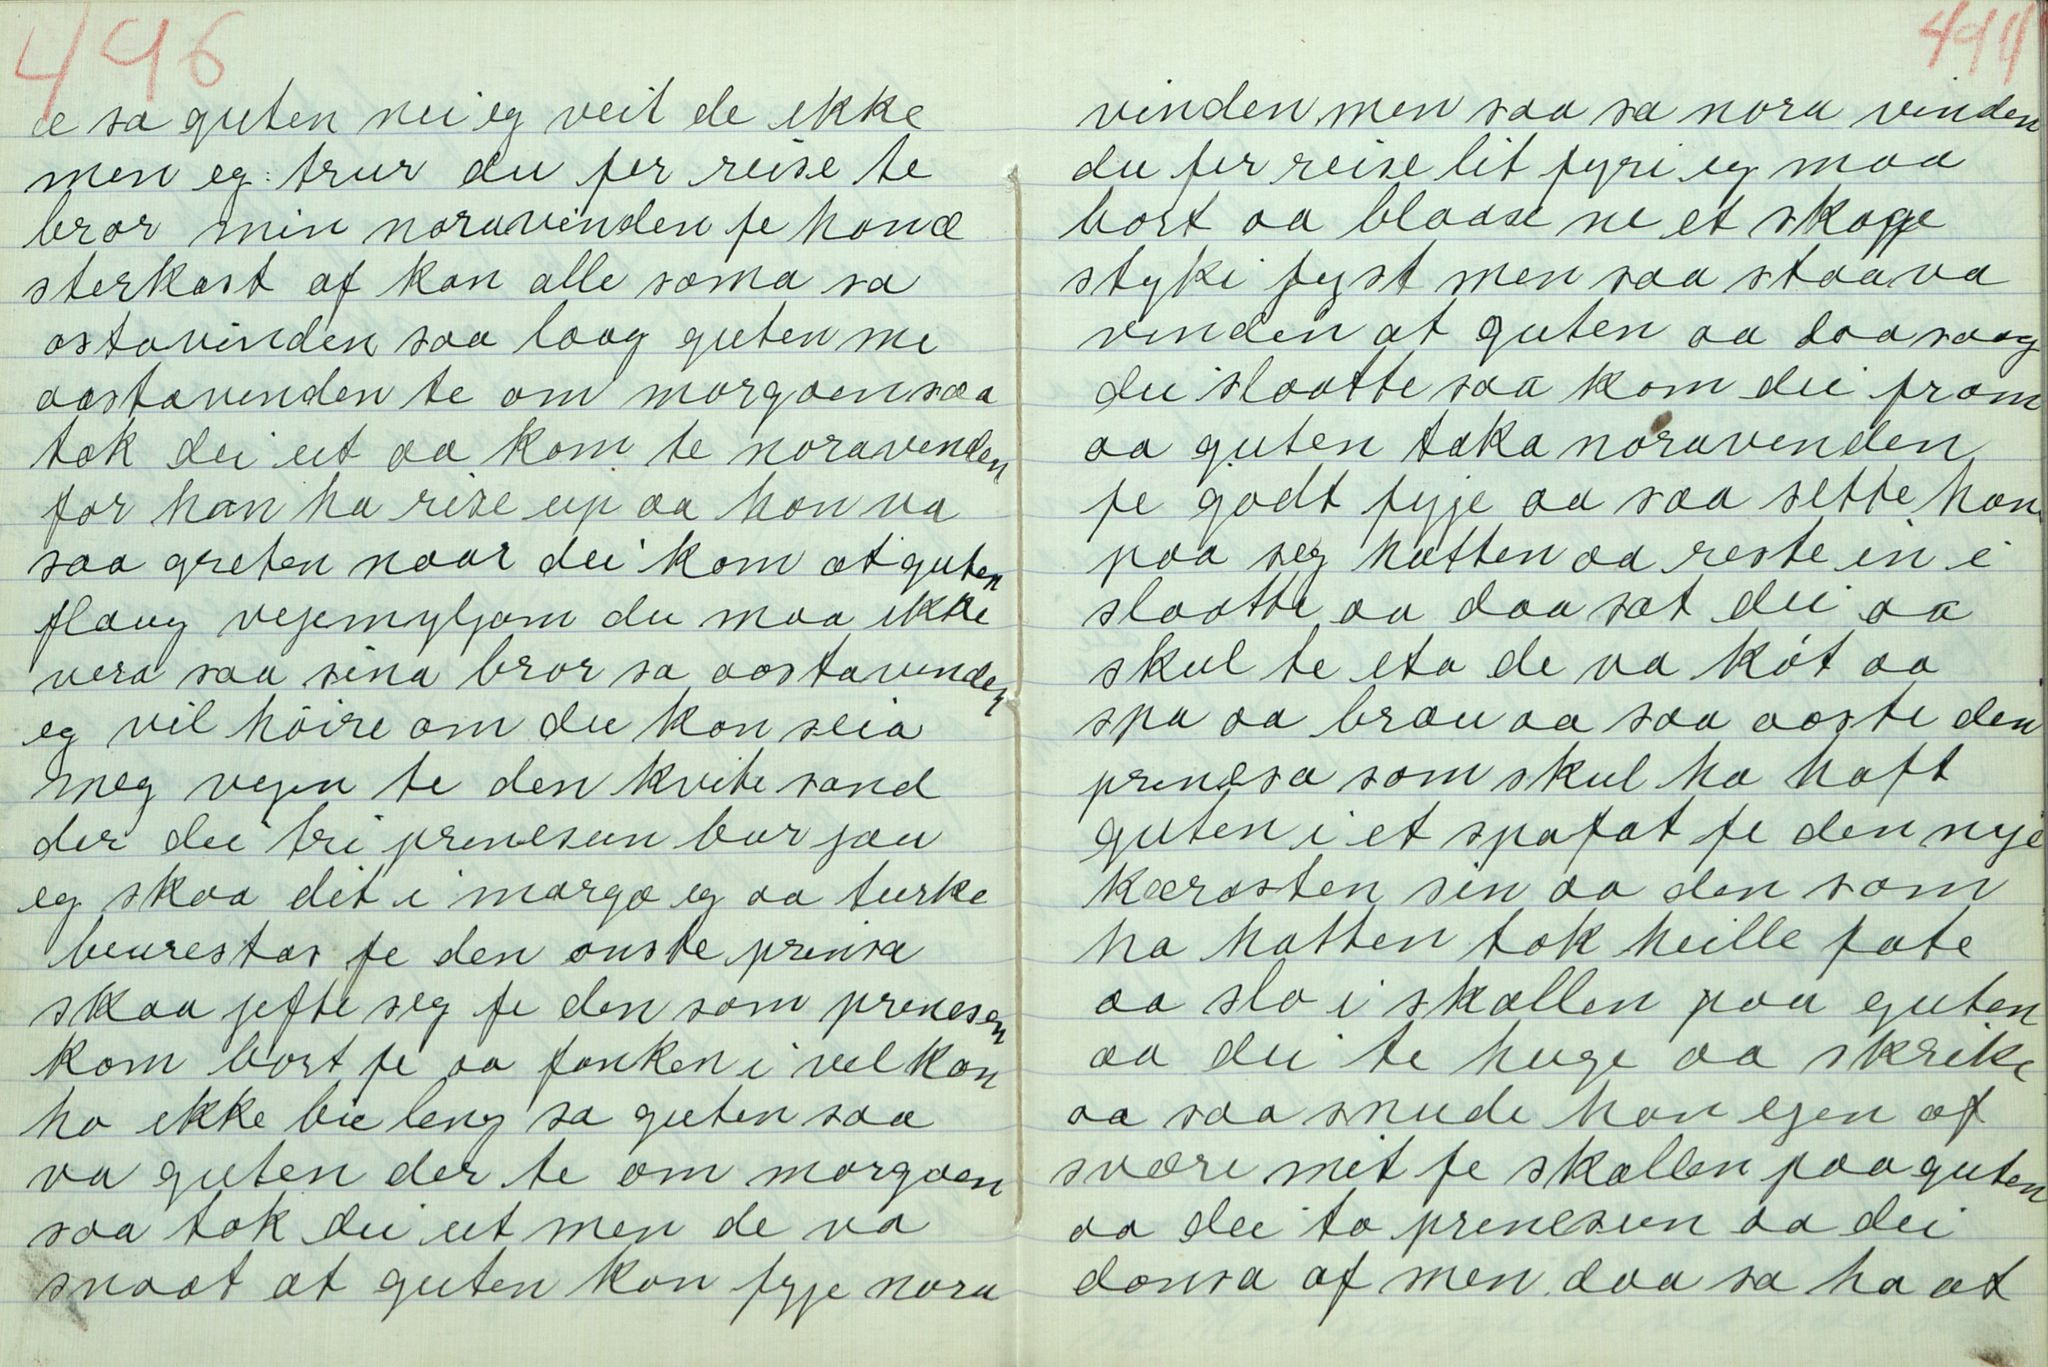 496
de sa guten nei eg veit de ikke
men eg trur du fer reise te
bror min noravinden fe hanæ
sterkast af kan alle sama sa
ostavinden saa laag guten me
aastavenden te om morgoen saa
tok dei ut aa kom te noravenden
for han ha rise up aa han va
saa greten naar dei kom at guten
flaug vejemyljom du maa ikke
vera saa sina bror sa aastavenden
eg vil høire om du kan seia
meg vejen te den kvite sand
der dei tri prinesun bur jau
eg skaa dit i margo eg aa turke
beurestas fe den onste prinsa
skaa jefte seg fe den som prenesen
kom bort fe aa fanken i vel kan
ha ikke bie leng sa guten saa
va guten der te om morgoen
saa tok dei ut men de va
snaat at guten kan fyje nora
494
vinden men saa sa nora vinden
du fer reise lit fyri eg maa
bort aa blaase ne et skogje
styki fyst men saa staava
vinden at guten aa daa saag
dei slaatte saa kom dei fram
aa guten taka noravenden
fe godt fyje aa saa sette han
paa seg hatten aa reste in i
slaatte aa daa sat dei aa
skul te eta de va køt aa
spa aa brau aa saa aaste den
prinesa som skul ha haft
guten i et spafat fe den nye
kærasten sin aa den som
ha hatten tok heille fate
aa slo i skallen paa guten
aa dei te huge aa skrike
aa saa snude han egen af
svære mit fe skallen paa guten
aa dei to prinesun aa dei
donsa af men daa sa ha at